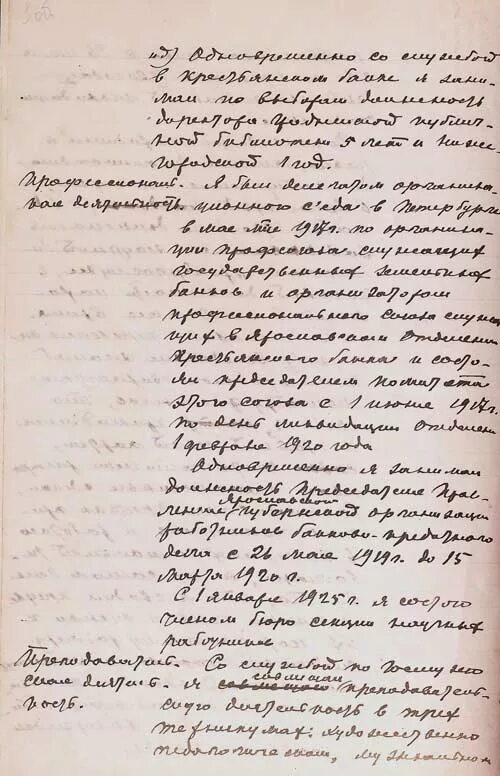 „д) Одновременно со службой
в Крестьянском банке я зани-
мал по выборам должность
директора публич-
ной библиотеки 5 лет и Ниже-
городской 1 год.
Профессионал. Я был делегатом организа-
ная деятельность. ционного с'езда в Петербурге
в мае м-це 1917г. по организа-
ции профсоюза служащих
государственных земельных
банков и организатором
профессионального союза служа-
щих в Ярославском Отделении
Крестьянского банка и состо-
ял председателем комитета
этого союза с 1 июня 1917г.
по день ликвидации Отделения
1 февраля 1920 года
Одновременно я занимал
должность председателя Прав-
ления Ярославской губернской организации
работников банково-кредитного
дела с 26 мая 1919г. до 15
марта 1920 г.
С 1 января 1925 г. я состою
членом бюро секции научных
работников
Преподаватель- Со службой по
ская деятель- я совмещал преподаватель-
ность. скую деятельность в трех
техникумах: художественно
педагогическом, музыкальном